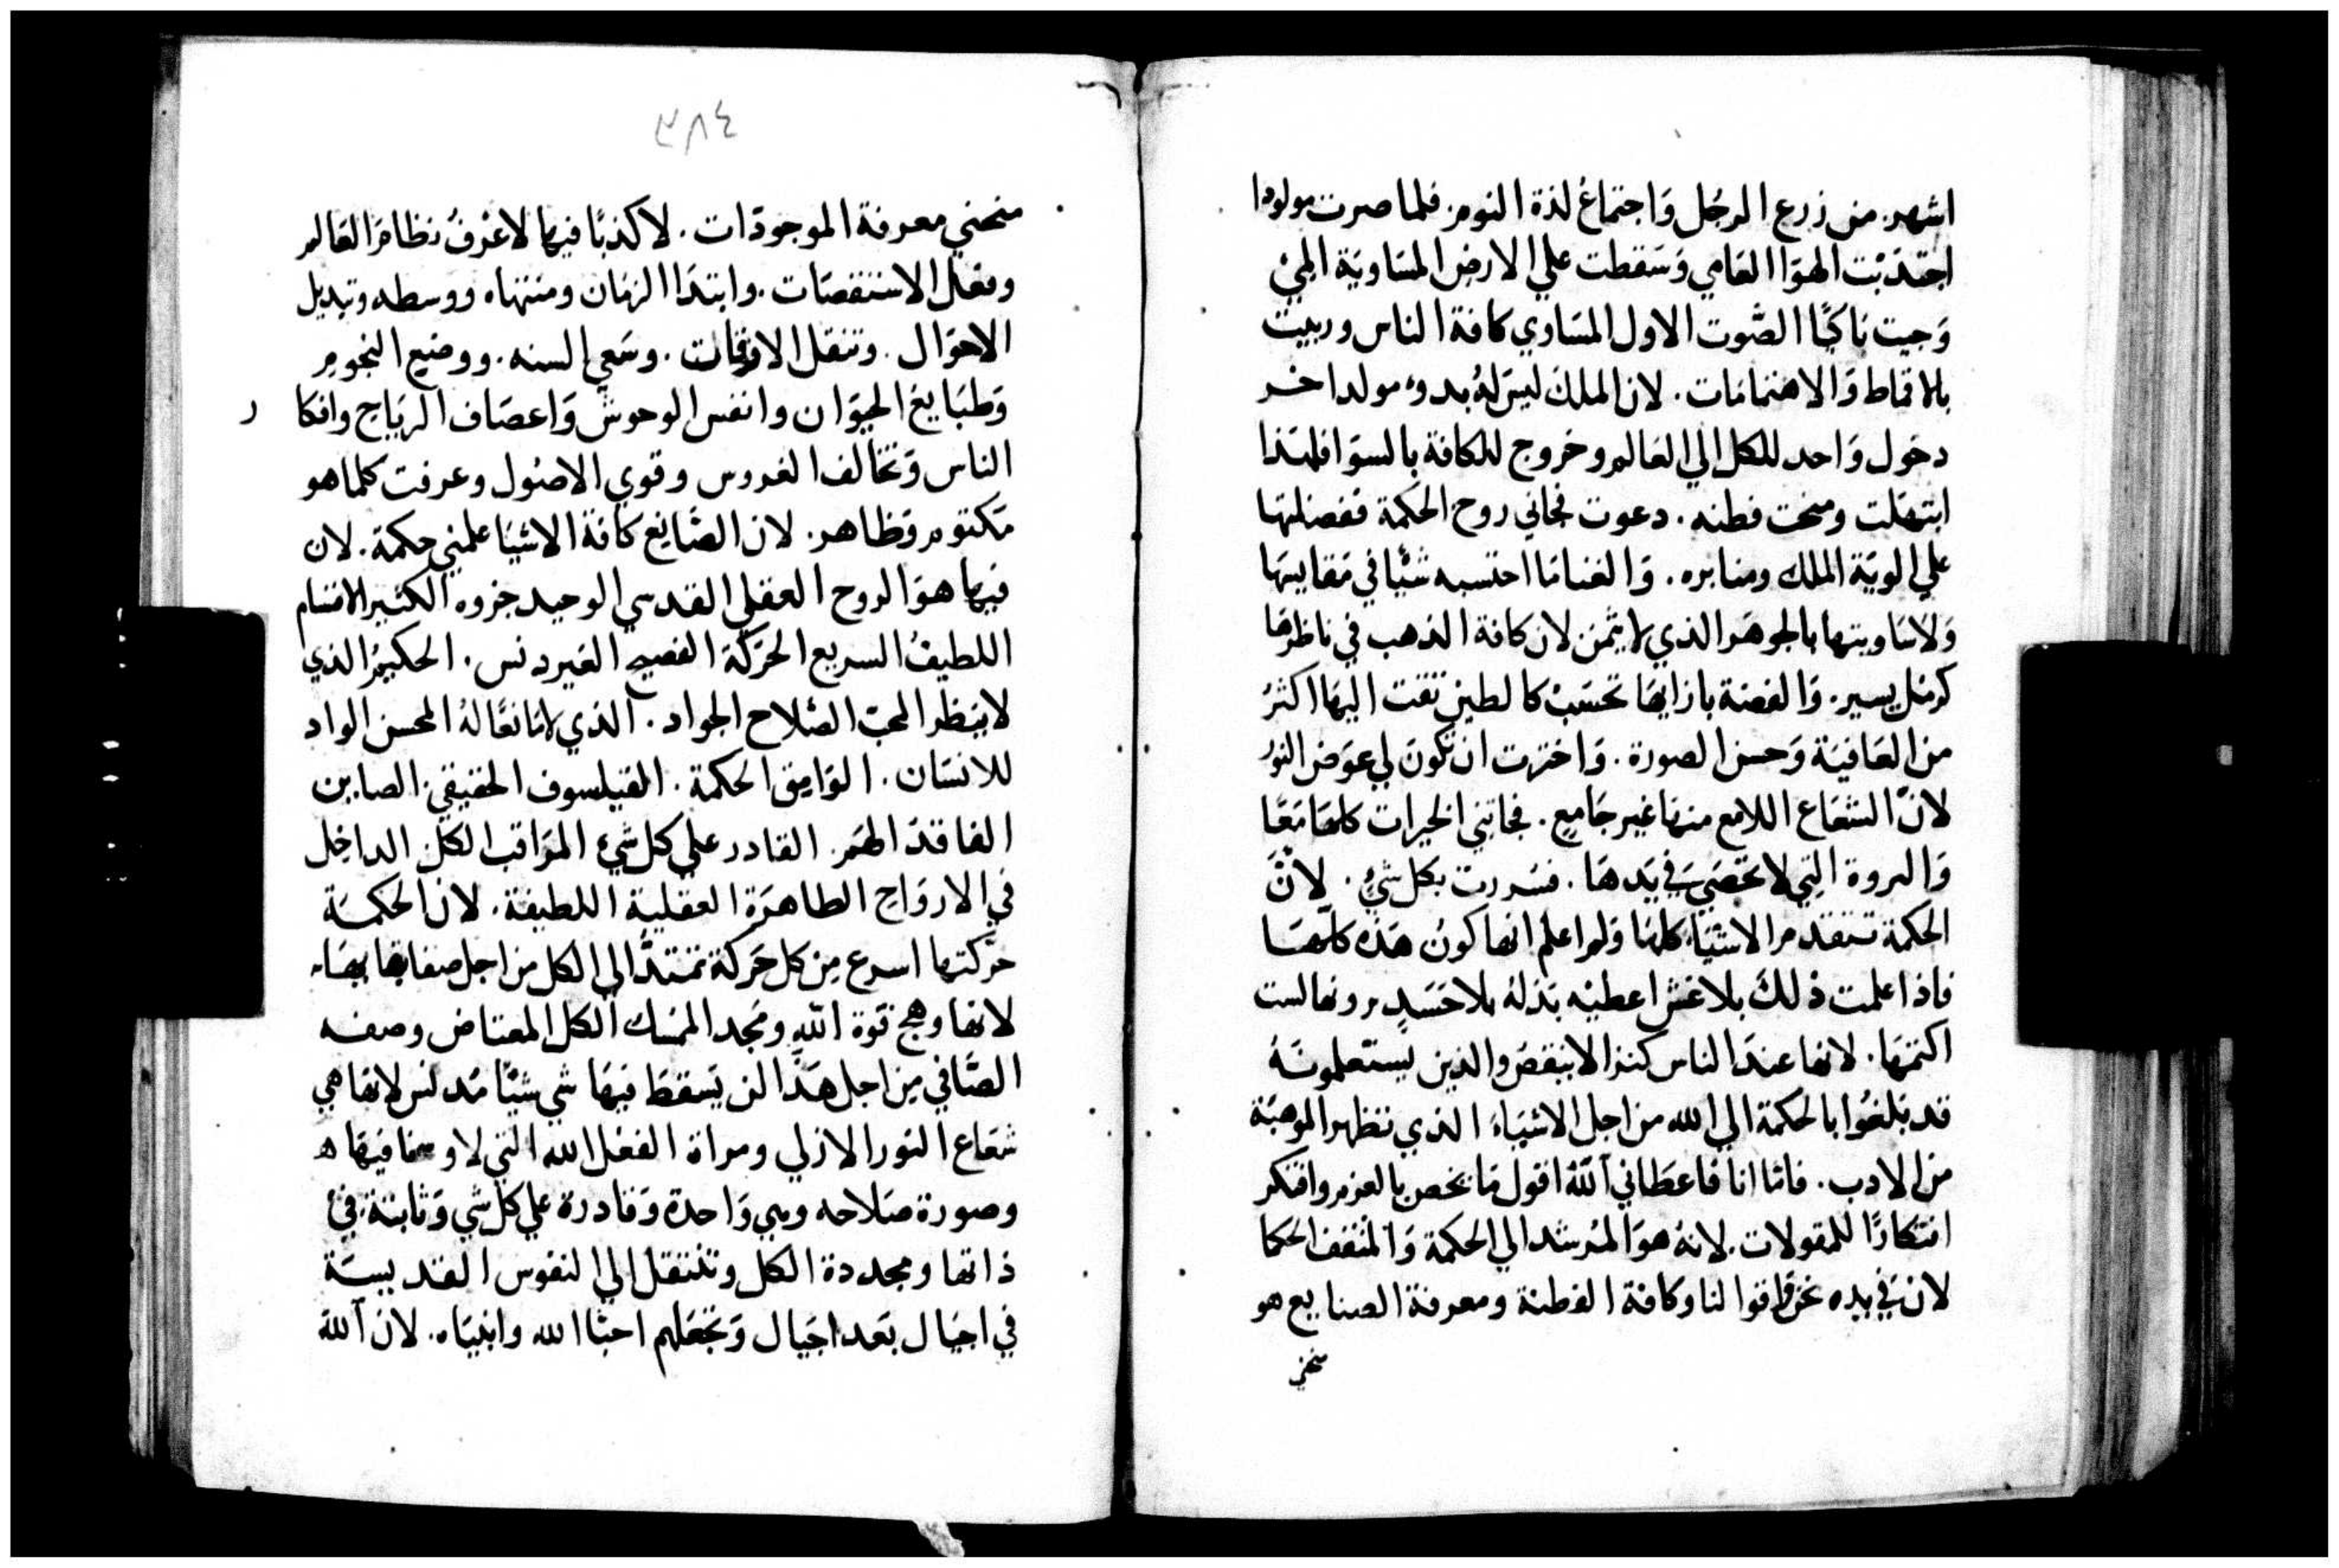 اشهر. من زرع الرجُل وَاجتماعُ لذة النوم. فلما صرت مولودا
اجتذبْت الهوَا العَامي وَسَقطت علي الارض المسَاويَة المي
وَجيت باكيًا الصَّوت الاول المسَاوي كافة الناس وربيت
بالاقماط وَالاهتمامَات. لان الملك ليسَ لهُ بدوء مولد اخر
دخول وَاحد للكل الي العَالم وخروج للكافة بالسوَا فلهَذا
ابتهَلت ومنحت فطنه. دعوت فجاني روح الحكمة ففضلتهَا
علي الويَة الملك ومنابره. وَالغنا مَا احتسبه شيًا في مَقايستهَا
وَلا سَاويتها بالجوهَر الذي لا يثمن لان كافة الذهب في ناظرهَا
كرمل يسير. وَالفضة بازايهَا تحسَبْ كالطين تقت اليهَا اكثرُ
من العَافيَة وَحسن الصورة. وَاخترت ان تكونَ لي عوَض النور
لانّ الشعَاع اللامع منهَا غير جَامعٍ. فجاتني الخيرات كلهَا مَعًا
وَالثروة التِي لا تحصَي في يَدهَا. فسُررت بكل شيٍ. لانَّ
الحكمة تتقدم الاشيَا كلهَا وَلم اعلم انها كونُ هَذه كلّهَا
فاذا علمت ذلكَ بلا غش اعطيْه بَذلهُ بلا حَسَدٍ. ونها لست
اكتمهَا. لانها عندَ الناس كنزا لا ينقصُ والذين يَستعلمونَهُ
قد بَلغوُا بالحكمة الي الله من اجل الاشيَاء الذي تظهر الموهبَة
من الادب. فامّا انا فاعطَاني اللهُ اقول مَا يخص بالعزم وافتكر
افتكارًا للمقولات. لانهُ هوَ المُرشد الي الحكمة وَالمثقف الحكما
لانْ في يده نحن واقوالنا وكافة الفطنة ومعرفة الصنايع هو
منحني
٣٨٤
منحني معرفة الموجودَات. لا كذبًا فيها لاعْرفُ نظامَ العَالم
وفعَل الاستقصَات. وابتدَا الزمَان ومنتهاه ووسطه وتبديل
الاحوَال. وتنقل الاوقات. وسَعي السنه. ووضع النجوم
وَطبَايع الحيوَان وانفس الوحوش وَاعصَاف الريَاح وافكار
الناس وَتخالف الغروس وقوي الاصُول وعرفت كلما هو
مَكتوم وَظاهر. لان الصَّانع كافة الاشيَا علمني حكمة. لان
فيها هوَ الروح العقلي القدسي الوحيد جزوه الكثير الاقسَام
اللطيفُ السريع الحرَكة الفصيح الغير دنس. الحكيمُ الذي
لا ينظر المحبّ الصّلاح الجواد. الذي لا مَانعًا لهُ المحسن الواد
للانسَان. الوَامق الحكمة. الفيلسوف الحقيقي. الصابن
الفاقدَ الهَم. القادر علي كل شيْ المرَاقب الكل الداخِل
في الارواح الطاهرَة العقلية اللطيفة. لان الحكمَة
حرّكتها اسرع مِن كل حَركة تمتدُّ الي الكل من اجل صفايها بهَا.
لانها وهج قوة اللهِ ومَجد الممسَك الكل المعتاض وصفه
الصَّافي مِن اجل هَذا لن يَسقط فيهَا شي شيًا مُدنس لانهَا هي
شعَاع النور الازلي ومراة الفعْل الله التي لا وسخا فيهَا ه
وصورة صَلاحه وهي وَاحدة وَقادرة علي كل شي وَثابتة في
ذاتها ومجددة الكل وتنتقل الي النفوس القديسَة
في اجيَال بَعد اجيَال وَتجعَلهم احبَّا الله وانبيَاه. لان اللهَ